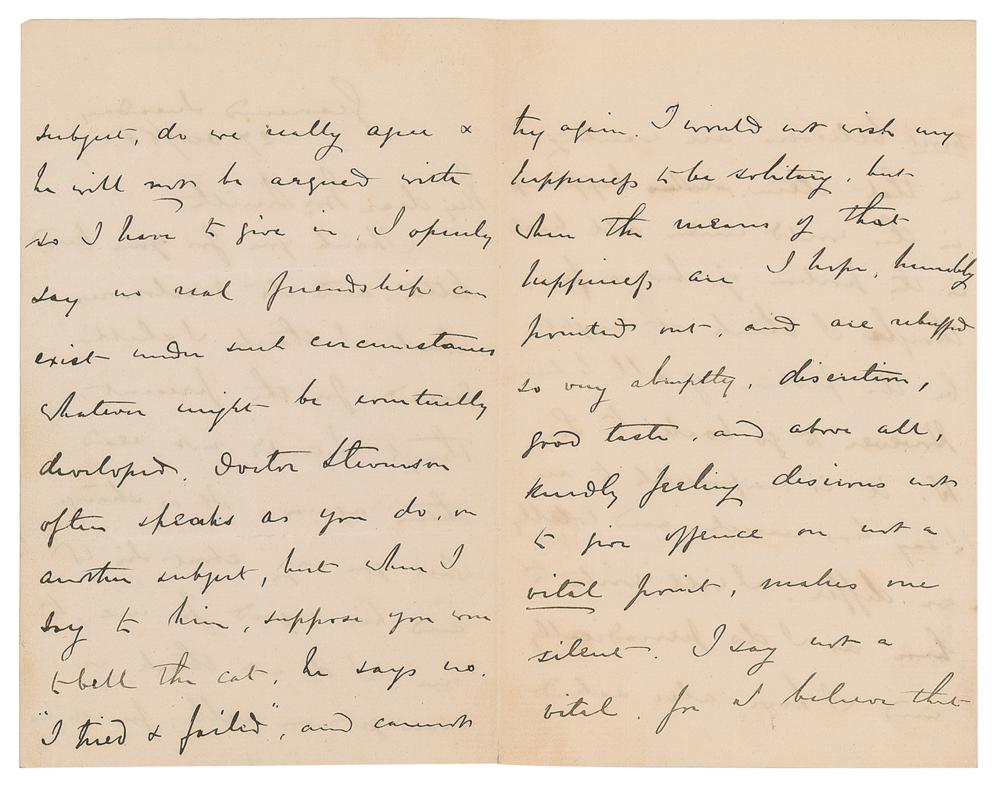 subject, do we really agree &
he will not be argued with
so I have to give in. I openly
say no real friendship can
exist under such circumstances
whatever might be eventually
developed. Doctor Stevenson
often speaks as you do, on
another subject, but when I
say to him, suppose you were
to bell the cat, he says no.
"I tried & failed", and cannot
try again. I would not wish my
happiness to be solitary, but
when the means of that
happiness are I hope, humbly
pointed out, and are rebuffed
so very abruptly, discretion,
good taste, and above all,
kindly feeling desirous not
to give offence on not a
vital point, makes one
silent. I say not a
vital. for I believe that